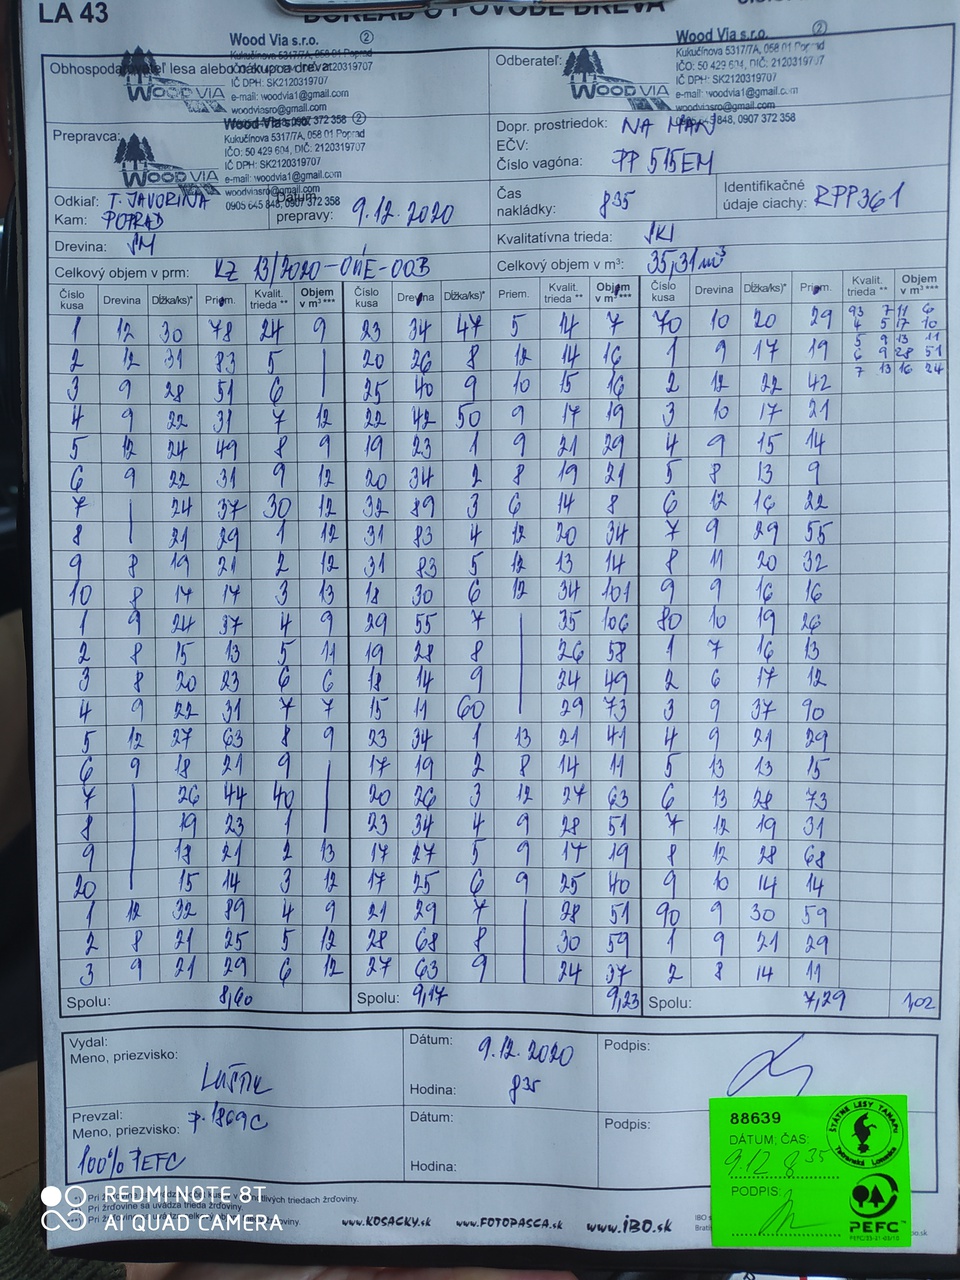 LA 43
DOKLAD O PÔVODE DREVA
Obhospodarovateľ lesa alebo nákupca dreva:
Wood Via s.r.o. ②
Kukučínova 5317/7A, 058 01 Poprad
IČO: 50 429 604, DIČ: 2120319707
IČ DPH: SK2120319707
e-mail: woodvia1@gmail.com
woodviasro@gmail.com
0905 645 848, 0907 372 358
WOOD VIA
Odberateľ:
Wood Via s.r.o. ②
Kukučínova 5317/7A, 058 01 Poprad
IČO: 50 429 604, DIČ: 2120319707
IČ DPH: SK2120319707
e-mail: woodvia1@gmail.com
woodviasro@gmail.com
0905 645 848, 0907 372 358
WOOD VIA
Prepravca:
Wood Via s.r.o. ②
Kukučínova 5317/7A, 058 01 Poprad
IČO: 50 429 604, DIČ: 2120319707
IČ DPH: SK2120319707
e-mail: woodvia1@gmail.com
woodviasro@gmail.com
0905 645 848, 0907 372 358
WOOD VIA
Dopr. prostriedok: NA MAN
EČV:
Číslo vagóna: PP 515EM
Odkiaľ: T. JAVORINA
Kam: POPRAD
Dátum prepravy: 9.12.2020
Čas nakládky: 8 35
Identifikačné údaje ciachy: RPP361
Drevina: SM
Kvalitatívna trieda:
Celkový objem v prm: KZ 13/2020-ONE-003
Celkový objem v m³: 35,31 m³
Číslo kusa Drevina Dĺžka/ks)* Priem. Kvalit. trieda ** Objem v m³ *** Číslo kusa Drevina Dĺžka/ks)* Priem. Kvalit. trieda ** Objem v m³ *** Číslo kusa Drevina Dĺžka/ks)* Priem. Kvalit. trieda ** Objem v m³ ***
1 12 30 78 24 9 23 34 47 5 14 7 70 10 20 29 93 7 11 6
4 5 17 10
5 9 13 11
2 12 31 83 5 20 26 8 12 14 16 1 9 17 19 6 9 28 51
7 13 16 24
3 9 28 51 6 25 40 9 10 15 16 2 12 22 42
4 9 22 31 7 12 22 42 50 9 17 19 3 10 17 21
5 12 24 49 8 9 19 23 1 9 21 29 4 9 15 14
6 9 22 31 9 12 20 34 2 8 19 21 5 8 13 9
7 24 37 30 12 32 89 3 6 14 8 6 12 16 22
8 21 29 1 12 31 83 4 12 20 34 7 9 29 55
9 8 19 21 2 12 31 83 5 12 13 14 8 11 20 32
10 8 17 17 3 13 18 30 6 12 34 101 9 9 16 16
1 9 24 37 4 9 29 55 7 35 106 80 10 19 26
2 8 15 13 5 11 19 28 8 26 58 1 7 16 13
3 8 20 23 6 6 18 14 9 24 49 2 6 17 12
4 9 22 31 7 7 15 11 60 29 73 3 9 37 90
5 12 27 63 8 9 23 34 1 13 21 41 4 9 21 29
6 9 18 21 9 17 19 2 8 14 11 5 13 13 15
7 26 44 40 20 26 3 12 27 63 6 13 28 73
8 19 23 1 23 34 4 9 28 51 7 12 19 31
9 18 21 2 13 17 27 5 9 17 19 8 12 28 68
20 15 14 3 12 17 25 6 9 25 40 9 10 14 14
1 12 32 89 4 9 21 29 7 28 51 90 9 30 59
2 8 21 25 5 12 28 68 8 30 59 1 9 21 29
3 9 21 29 6 12 27 63 9 24 37 2 8 14 11
Spolu: 8,60 Spolu: 9,17 9,23 Spolu: 7,29 1,02
Vydal:
Meno, priezvisko:
Dátum: 9.12.2020
Hodina: 8 35
Podpis:
Prevzal:
Meno, priezvisko:
100% PEFC
Dátum:
Hodina:
Podpis:
88639
DÁTUM; ČAS:
9.12 8 35
PODPIS:
ŠTÁTNE LESY TANAPu
Tatranská Lomnica
PEFC
REDMI NOTE 8T
AI QUAD CAMERA
www.KOSACKY.sk
www.FOTOPASCA.sk
www.iBO.sk